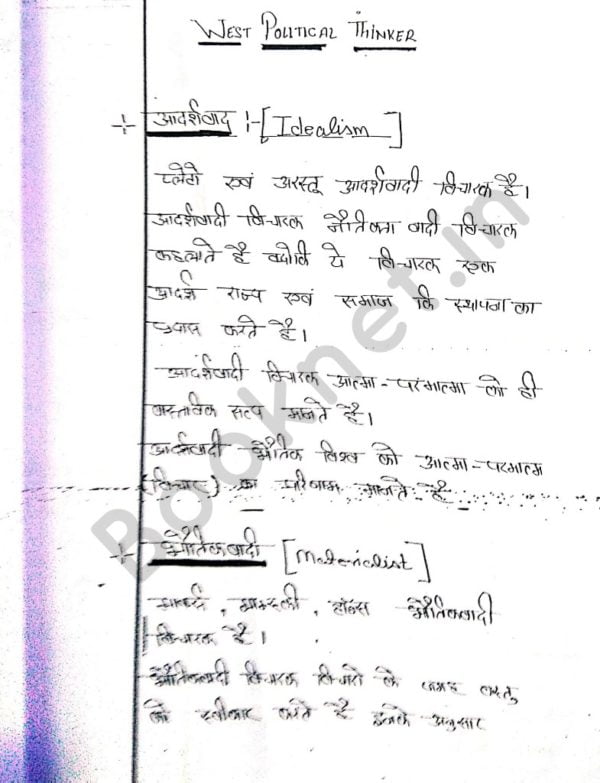 WEST POLITICAL THINKER
आदर्शवाद :- [Idealism]
प्लेटो एवं अरस्तू आदर्शवादी विचारक है।
आदर्शवादी विचारक नैतिकता वादी विचारक
कहलाते है क्योकि ये विचारक एक
आदर्श राज्य एवं समाज कि स्थापना का
प्रयास करते है।
आदर्शवादी विचारक आत्मा-परमात्मा को ही
वास्तविक सत्य मानते है।
आदर्शवादी भौतिक विश्व को आत्मा-परमात्मा
(विचार) का परिणाम मानते है
भौतिकवादी [Materialist]
मार्क्स, हॉब्स भौतिकवादी
विचारक है।
भौतिकवादी विचारक विचारो के जगह वस्तु
को स्वीकार करते है इनके अनुसार
Booknet.in